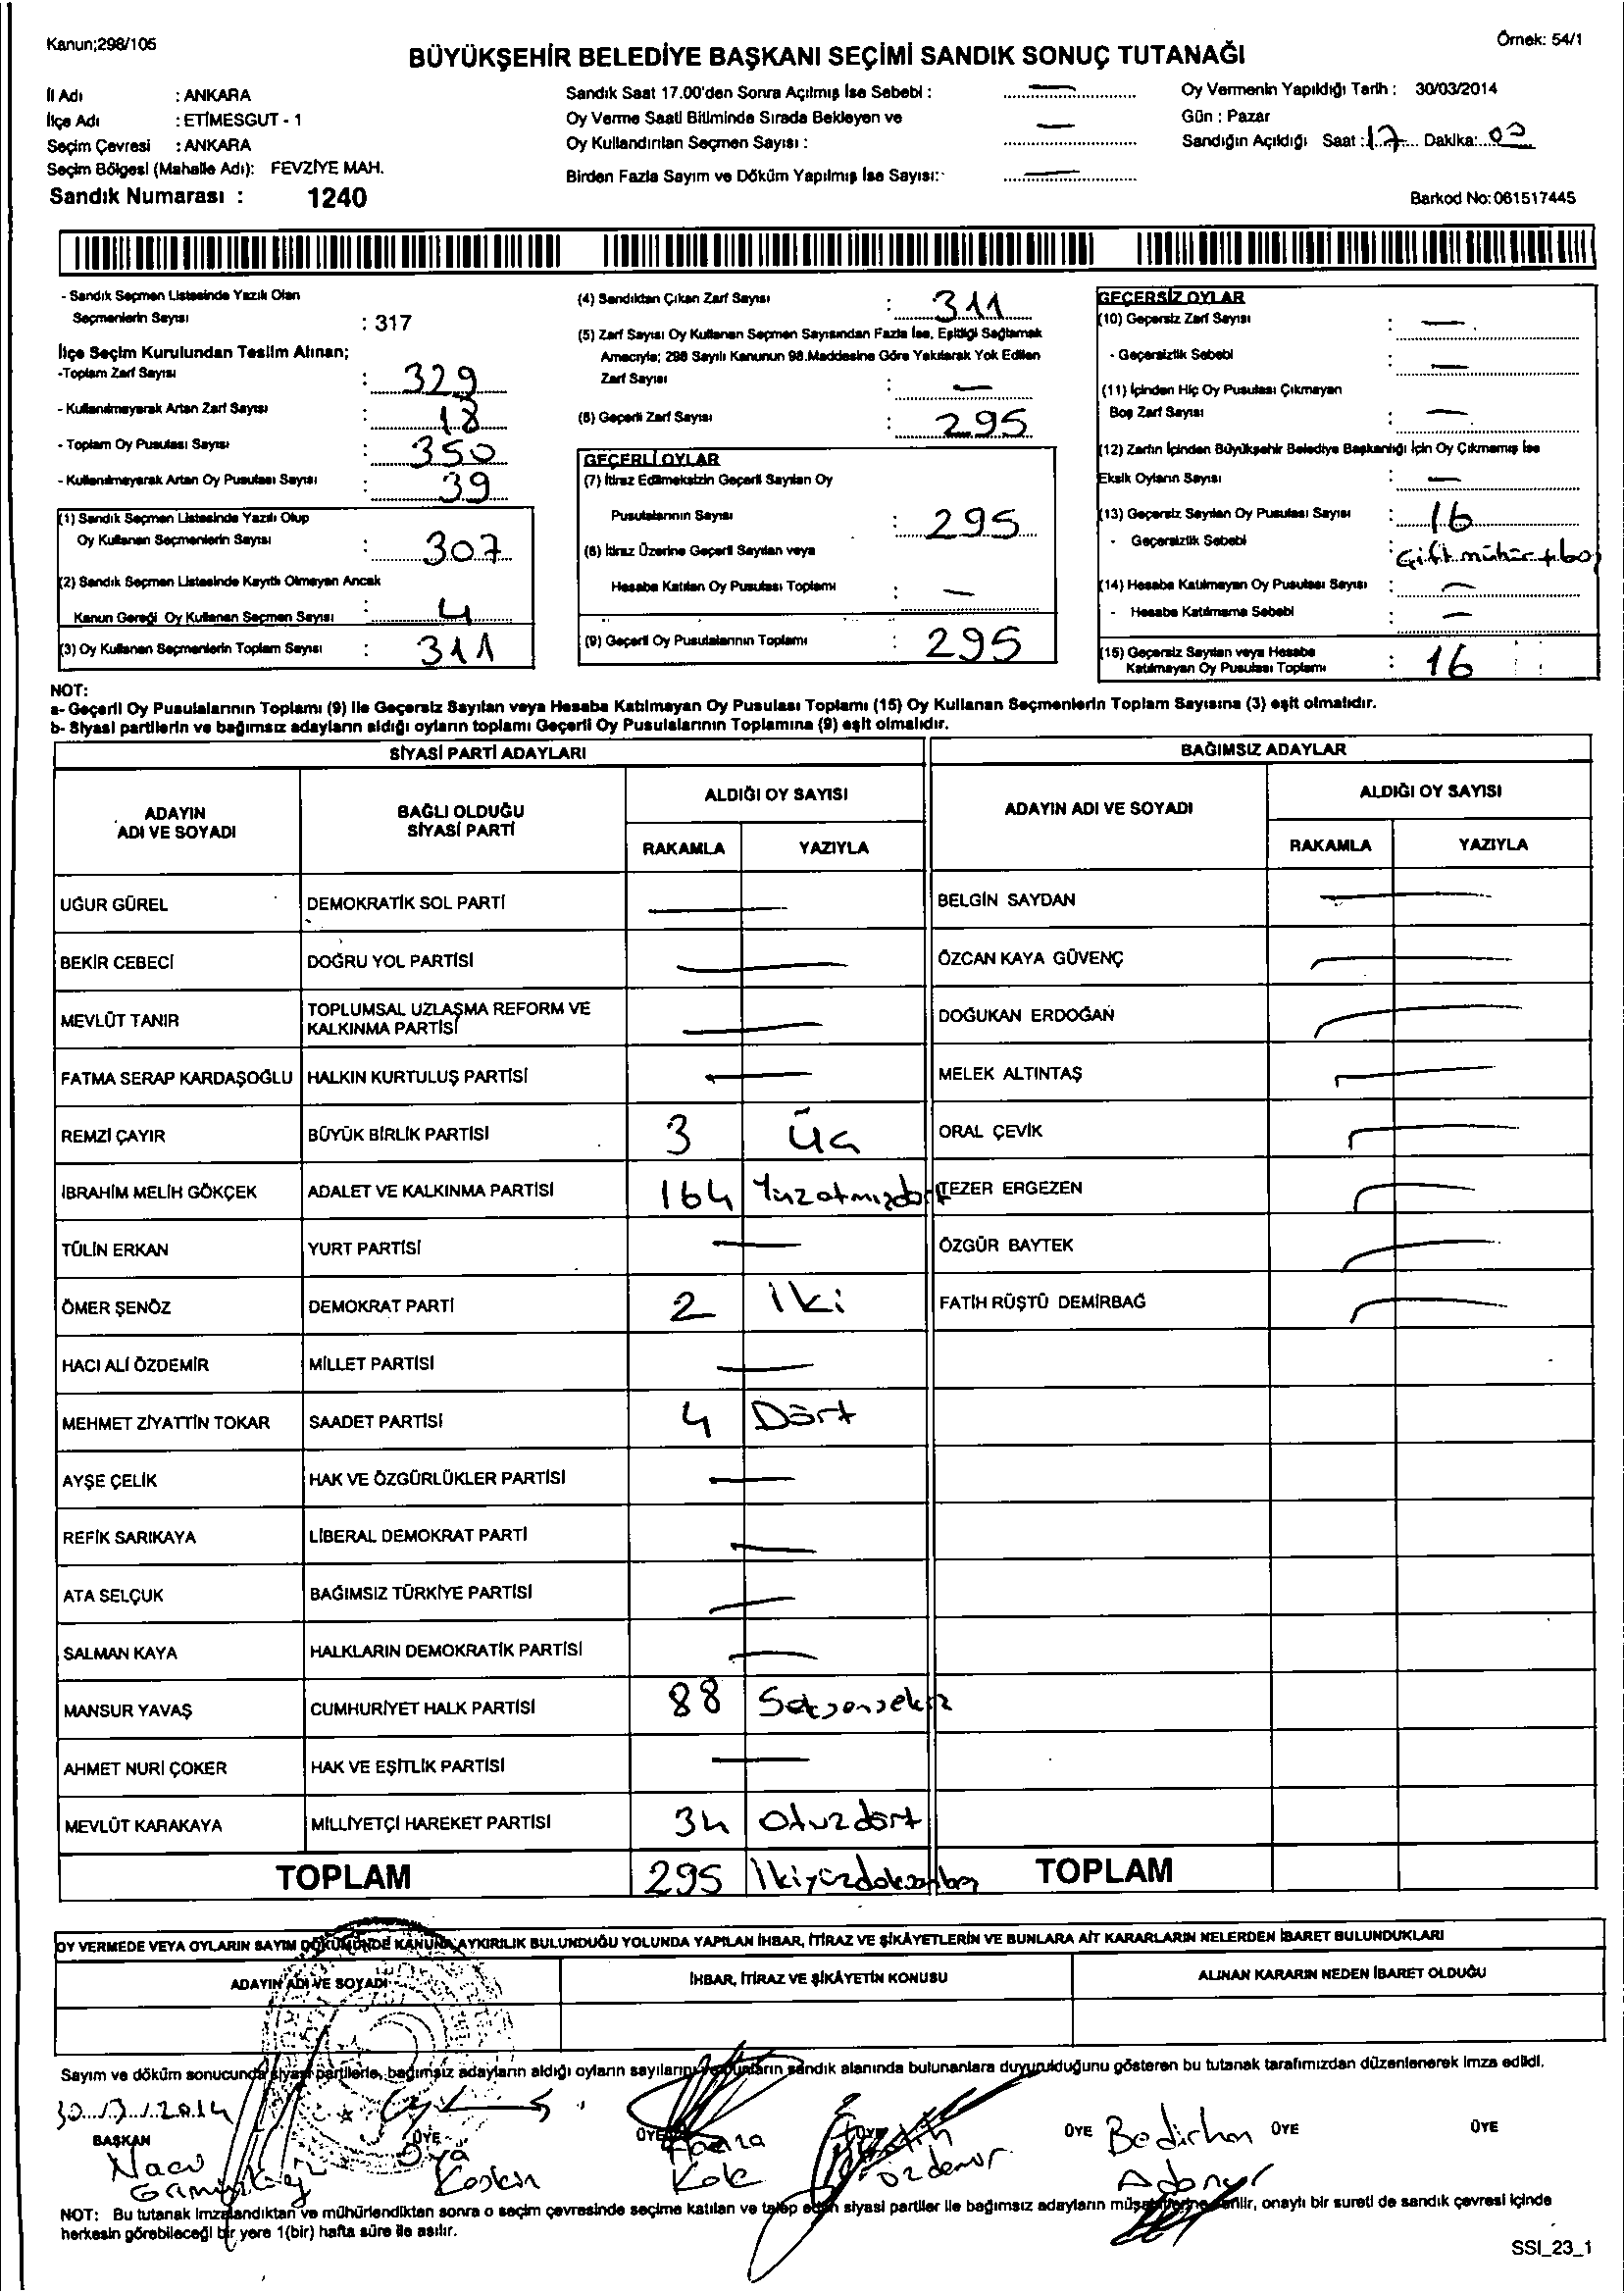 Kanun;298/105
Örnek: 54/1
BÜYÜKŞEHİR BELEDİYE BAŞKANI SEÇİMİ SANDIK SONUÇ TUTANAĞI
İl Adı : ANKARA
İlçe Adı : ETİMESGUT - 1
Seçim Çevresi : ANKARA
Seçim Bölgesi (Mahalle Adı): FEVZİYE MAH.
Sandık Numarası : 1240
Sandık Saat 17.00'den Sonra Açılmış İse Sebebi : —
Oy Verme Saati Bitiminde Sırada Bekleyen ve
Oy Kullandırılan Seçmen Sayısı : —
Birden Fazla Sayım ve Döküm Yapılmış İse Sayısı: —
Oy Vermenin Yapıldığı Tarih : 30/03/2014
Gün : Pazar
Sandığın Açıldığı Saat : 17 Dakika: 02
Barkod No:061517445
- Sandık Seçmen Listesinde Yazılı Olan
Seçmenlerin Sayısı : 317
İlçe Seçim Kurulundan Teslim Alınan;
-Toplam Zarf Sayısı : 329
- Kullanılmayarak Artan Zarf Sayısı : 18
- Toplam Oy Pusulası Sayısı : 350
- Kullanılmayarak Artan Oy Pusulası Sayısı : 39
(1) Sandık Seçmen Listesinde Yazılı Olup
Oy Kullanan Seçmenlerin Sayısı : 307
(2) Sandık Seçmen Listesinde Kayıtlı Olmayan Ancak
Kanun Gereği Oy Kullanan Seçmen Sayısı : 4
(3) Oy Kullanan Seçmenlerin Toplam Sayısı : 311
(4) Sandıktan Çıkan Zarf Sayısı : 311
(5) Zarf Sayısı Oy Kullanan Seçmen Sayısından Fazla İse, Eşitliği Sağlamak
Amacıyla; 298 Sayılı Kanunun 98.Maddesine Göre Yakılarak Yok Edilen
Zarf Sayısı : —
(6) Geçerli Zarf Sayısı : 295
GEÇERLİ OYLAR
(7) İtiraz Edilmeksizin Geçerli Sayılan Oy
Pusulalarının Sayısı : 295
(8) İtiraz Üzerine Geçerli Sayılan veya
Hesaba Katılan Oy Pusulası Toplamı : —
(9) Geçerli Oy Pusulalarının Toplamı : 295
GEÇERSİZ OYLAR
(10) Geçersiz Zarf Sayısı : —
- Geçersizlik Sebebi : —
(11) İçinden Hiç Oy Pusulası Çıkmayan
Boş Zarf Sayısı : —
(12) Zarfın İçinden Büyükşehir Belediye Başkanlığı İçin Oy Çıkmamış İse
Eksik Oyların Sayısı : —
(13) Geçersiz Sayılan Oy Pusulası Sayısı : 16
- Geçersizlik Sebebi : Çift mühür + boş
(14) Hesaba Katılmayan Oy Pusulası Sayısı : —
- Hesaba Katılmama Sebebi : —
(15) Geçersiz Sayılan veya Hesaba
Katılmayan Oy Pusulası Toplamı : 16
NOT:
a- Geçerli Oy Pusulalarının Toplamı (9) ile Geçersiz Sayılan veya Hesaba Katılmayan Oy Pusulası Toplamı (15) Oy Kullanan Seçmenlerin Toplam Sayısına (3) eşit olmalıdır.
b- Siyasi partilerin ve bağımsız adayların aldığı oyların toplamı Geçerli Oy Pusulalarının Toplamına (9) eşit olmalıdır.
SİYASİ PARTİ ADAYLARI
BAĞIMSIZ ADAYLAR
ADAYIN ADI VE SOYADI
BAĞLI OLDUĞU SİYASİ PARTİ
ALDIĞI OY SAYISI
RAKAMLA YAZIYLA
ADAYIN ADI VE SOYADI
ALDIĞI OY SAYISI
RAKAMLA YAZIYLA
UĞUR GÜREL DEMOKRATİK SOL PARTİ — BELGİN SAYDAN —
BEKİR CEBECİ DOĞRU YOL PARTİSİ — ÖZCAN KAYA GÜVENÇ —
MEVLÜT TANIR TOPLUMSAL UZLAŞMA REFORM VE KALKINMA PARTİSİ — DOĞUKAN ERDOĞAN —
FATMA SERAP KARDAŞOĞLU HALKIN KURTULUŞ PARTİSİ — MELEK ALTINTAŞ —
REMZİ ÇAYIR BÜYÜK BİRLİK PARTİSİ 3 Üç ORAL ÇEVİK —
İBRAHİM MELİH GÖKÇEK ADALET VE KALKINMA PARTİSİ 164 Yüzatmışdört TEZER ERGEZEN —
TÜLİN ERKAN YURT PARTİSİ — ÖZGÜR BAYTEK —
ÖMER ŞENÖZ DEMOKRAT PARTİ 2 İki FATİH RÜŞTÜ DEMİRBAĞ —
HACI ALİ ÖZDEMİR MİLLET PARTİSİ —
MEHMET ZİYATTİN TOKAR SAADET PARTİSİ 4 Dört
AYŞE ÇELİK HAK VE ÖZGÜRLÜKLER PARTİSİ —
REFİK SARIKAYA LİBERAL DEMOKRAT PARTİ —
ATA SELÇUK BAĞIMSIZ TÜRKİYE PARTİSİ —
SALMAN KAYA HALKLARIN DEMOKRATİK PARTİSİ —
MANSUR YAVAŞ CUMHURİYET HALK PARTİSİ 88 Seksensekiz
AHMET NURİ ÇOKER HAK VE EŞİTLİK PARTİSİ —
MEVLÜT KARAKAYA MİLLİYETÇİ HAREKET PARTİSİ 34 Otuzdört
TOPLAM 295 İkiyüzdoksanbeş TOPLAM
OY VERMEDE VEYA OYLARIN SAYIM DÖKÜMÜNDE KANUNA AYKIRILIK BULUNDUĞU YOLUNDA YAPILAN İHBAR, İTİRAZ VE ŞİKÂYETLERİN VE BUNLARA AİT KARARLARIN NELERDEN İBARET BULUNDUKLARI
ADAYIN ADI VE SOYADI İHBAR, İTİRAZ VE ŞİKÂYETİN KONUSU ALINAN KARARIN NEDEN İBARET OLDUĞU
Sayım ve döküm sonucunda siyasi partilerle, bağımsız adayların aldığı oyların sayılarını ve bunların sandık alanında bulunanlara duyurulduğunu gösteren bu tutanak tarafımızdan düzenlenerek imza edildi.
30/3/2014
BAŞKAN ÜYE ÜYE ÜYE ÜYE Bedirhan ÜYE ÜYE
Naci Oya Hamza Fatih
Keskin Kok Özdemir
NOT: Bu tutanak imzalandıktan ve mühürlendikten sonra o seçim çevresinde seçime katılan ve talep eden siyasi partiler ile bağımsız adayların müşahitlerine verilir, onaylı bir sureti de sandık çevresi içinde
herkesin görebileceği bir yere 1(bir) hafta süre ile asılır.
SSI_23_1